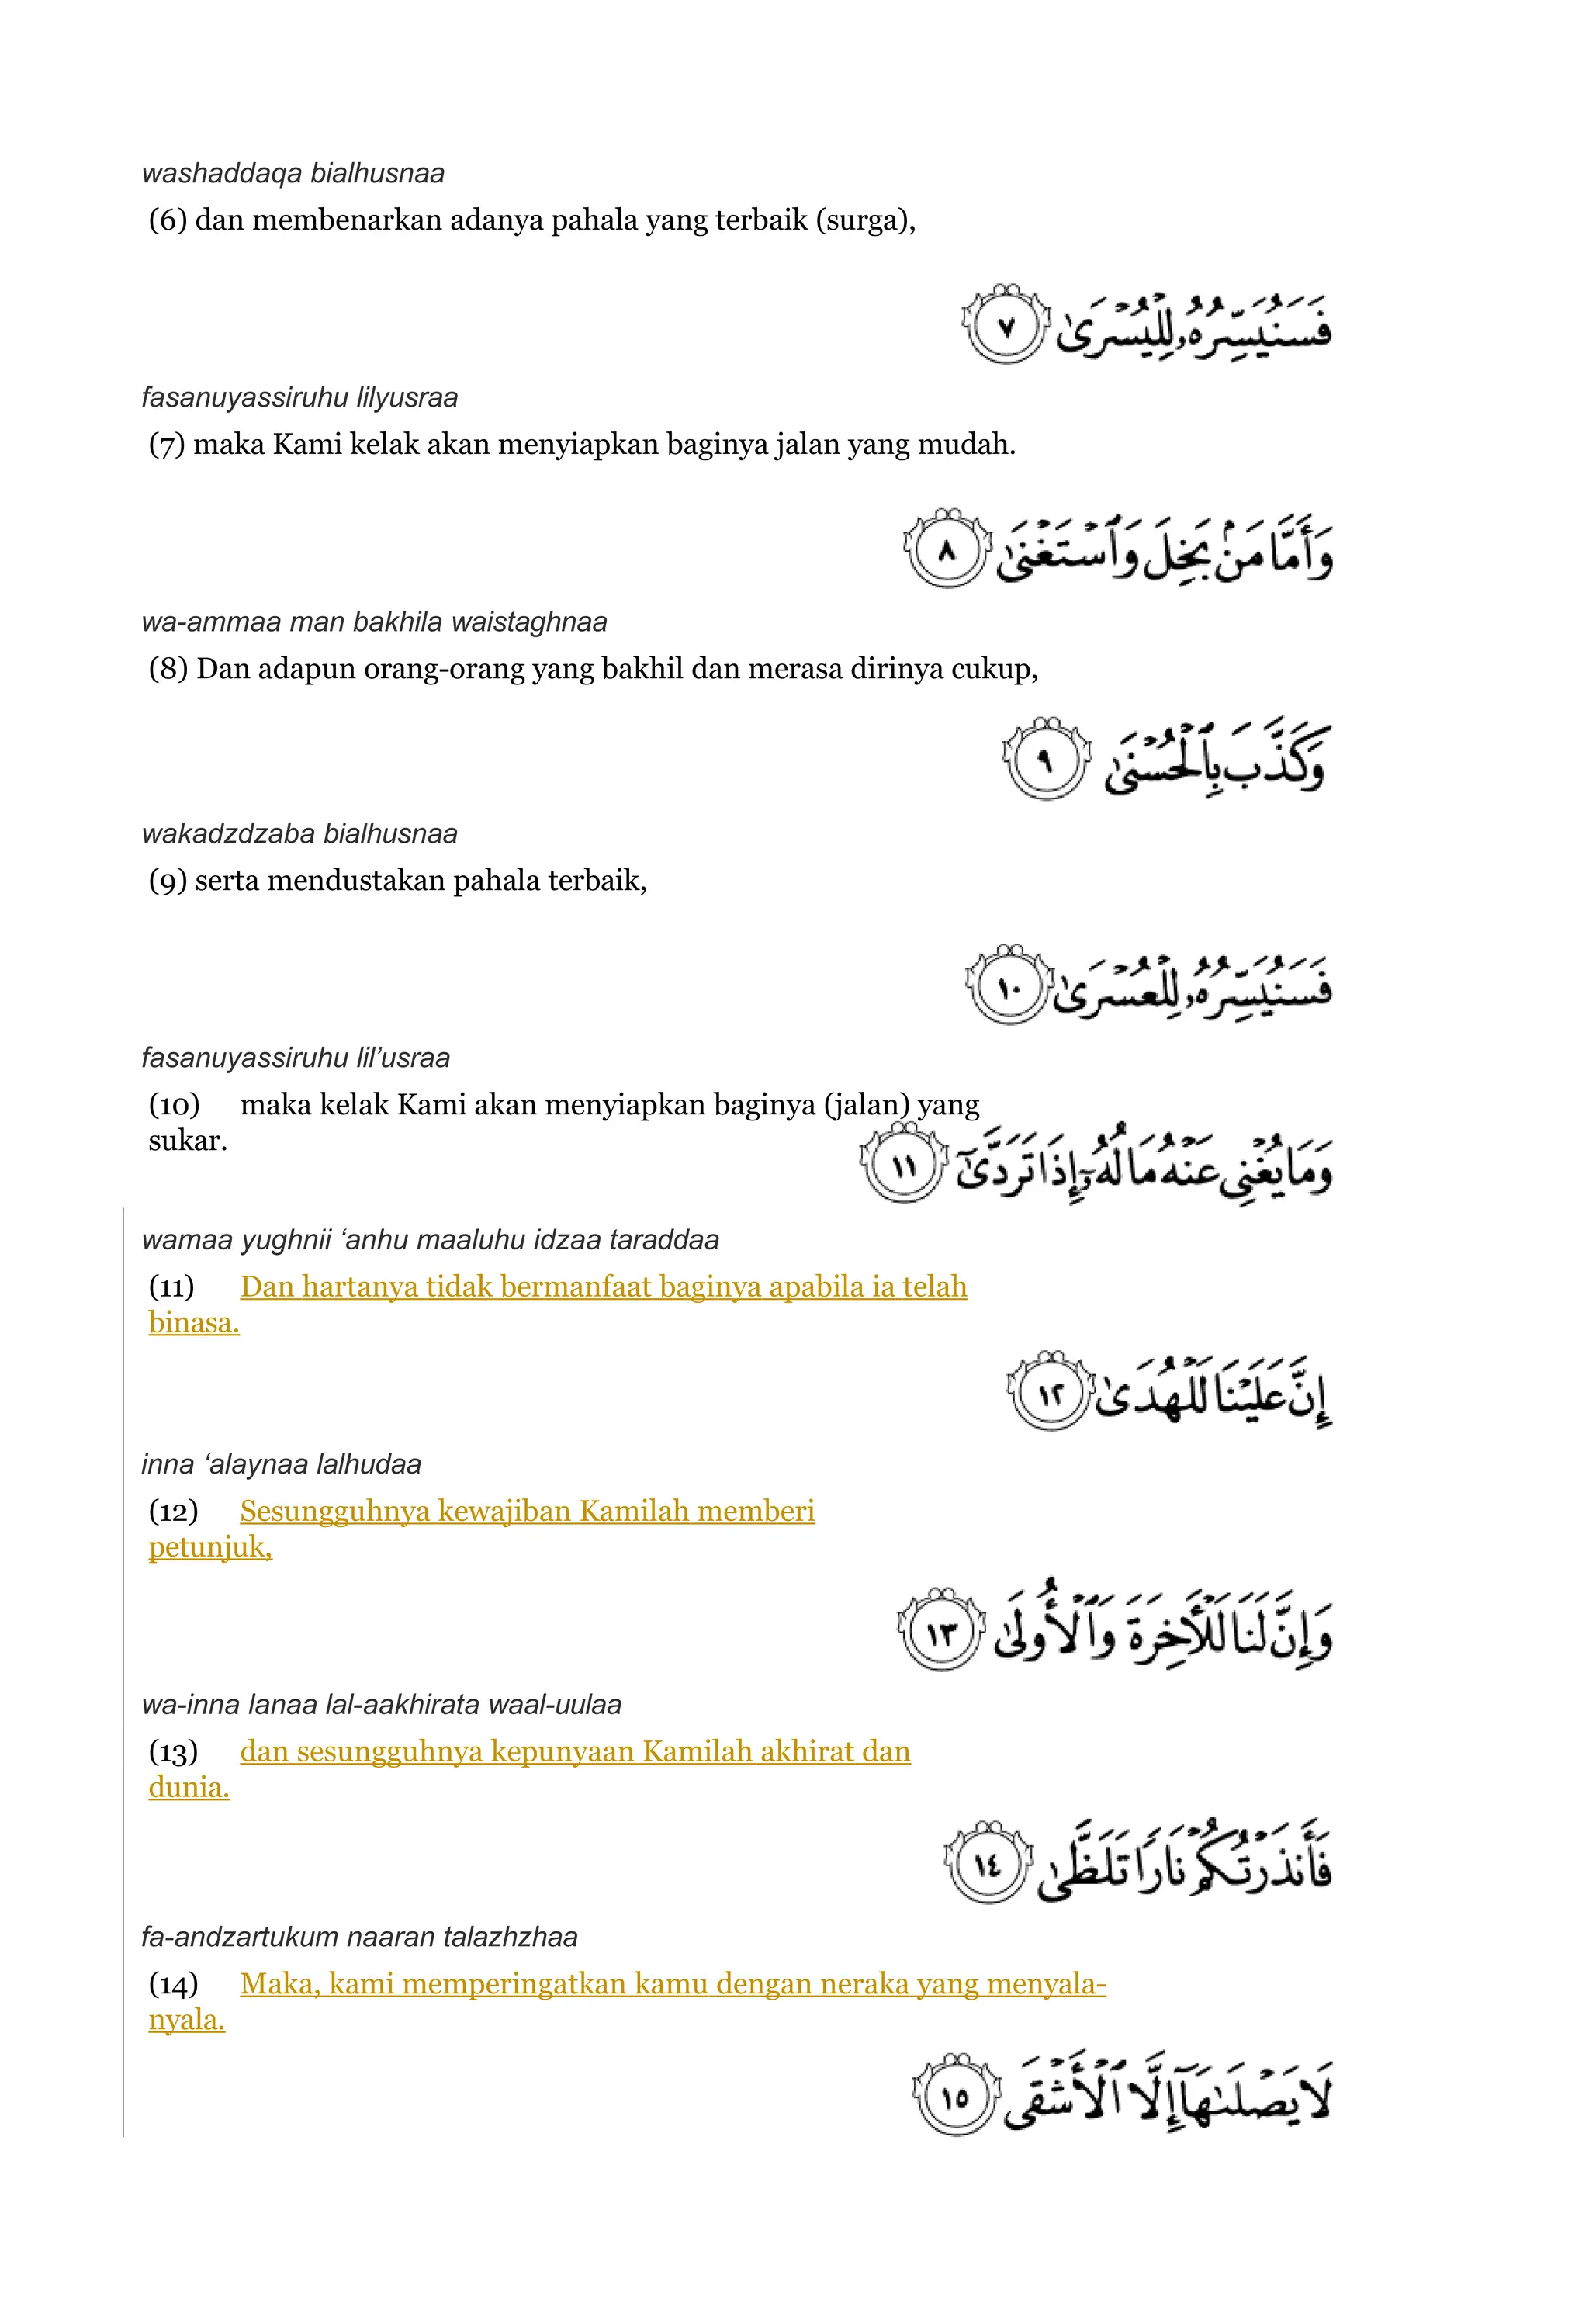 washaddaqa bialhusnaa
(6) dan membenarkan adanya pahala yang terbaik (surga),
فَسَنُيَسِّرُهُۥ لِلْيُسْرَىٰ ٧
fasanuyassiruhu lilyusraa
(7) maka Kami kelak akan menyiapkan baginya jalan yang mudah.
وَأَمَّا مَنۢ بَخِلَ وَٱسْتَغْنَىٰ ٨
wa-ammaa man bakhila waistaghnaa
(8) Dan adapun orang-orang yang bakhil dan merasa dirinya cukup,
وَكَذَّبَ بِٱلْحُسْنَىٰ ٩
wakadzdzaba bialhusnaa
(9) serta mendustakan pahala terbaik,
فَسَنُيَسِّرُهُۥ لِلْعُسْرَىٰ ١٠
fasanuyassiruhu lil’usraa
(10) maka kelak Kami akan menyiapkan baginya (jalan) yang
sukar.
وَمَا يُغْنِى عَنْهُ مَالُهُۥٓ إِذَا تَرَدَّىٰٓ ١١
wamaa yughnii ‘anhu maaluhu idzaa taraddaa
(11) Dan hartanya tidak bermanfaat baginya apabila ia telah
binasa.
إِنَّ عَلَيْنَا لَلْهُدَىٰ ١٢
inna ‘alaynaa lalhudaa
(12) Sesungguhnya kewajiban Kamilah memberi
petunjuk,
وَإِنَّ لَنَا لَلْـَٔاخِرَةَ وَٱلْأُولَىٰ ١٣
wa-inna lanaa lal-aakhirata waal-uulaa
(13) dan sesungguhnya kepunyaan Kamilah akhirat dan
dunia.
فَأَنذَرْتُكُمْ نَارًا تَلَظَّىٰ ١٤
fa-andzartukum naaran talazhzhaa
(14) Maka, kami memperingatkan kamu dengan neraka yang menyala-
nyala.
لَا يَصْلَىٰهَآ إِلَّا ٱلْأَشْقَى ١٥